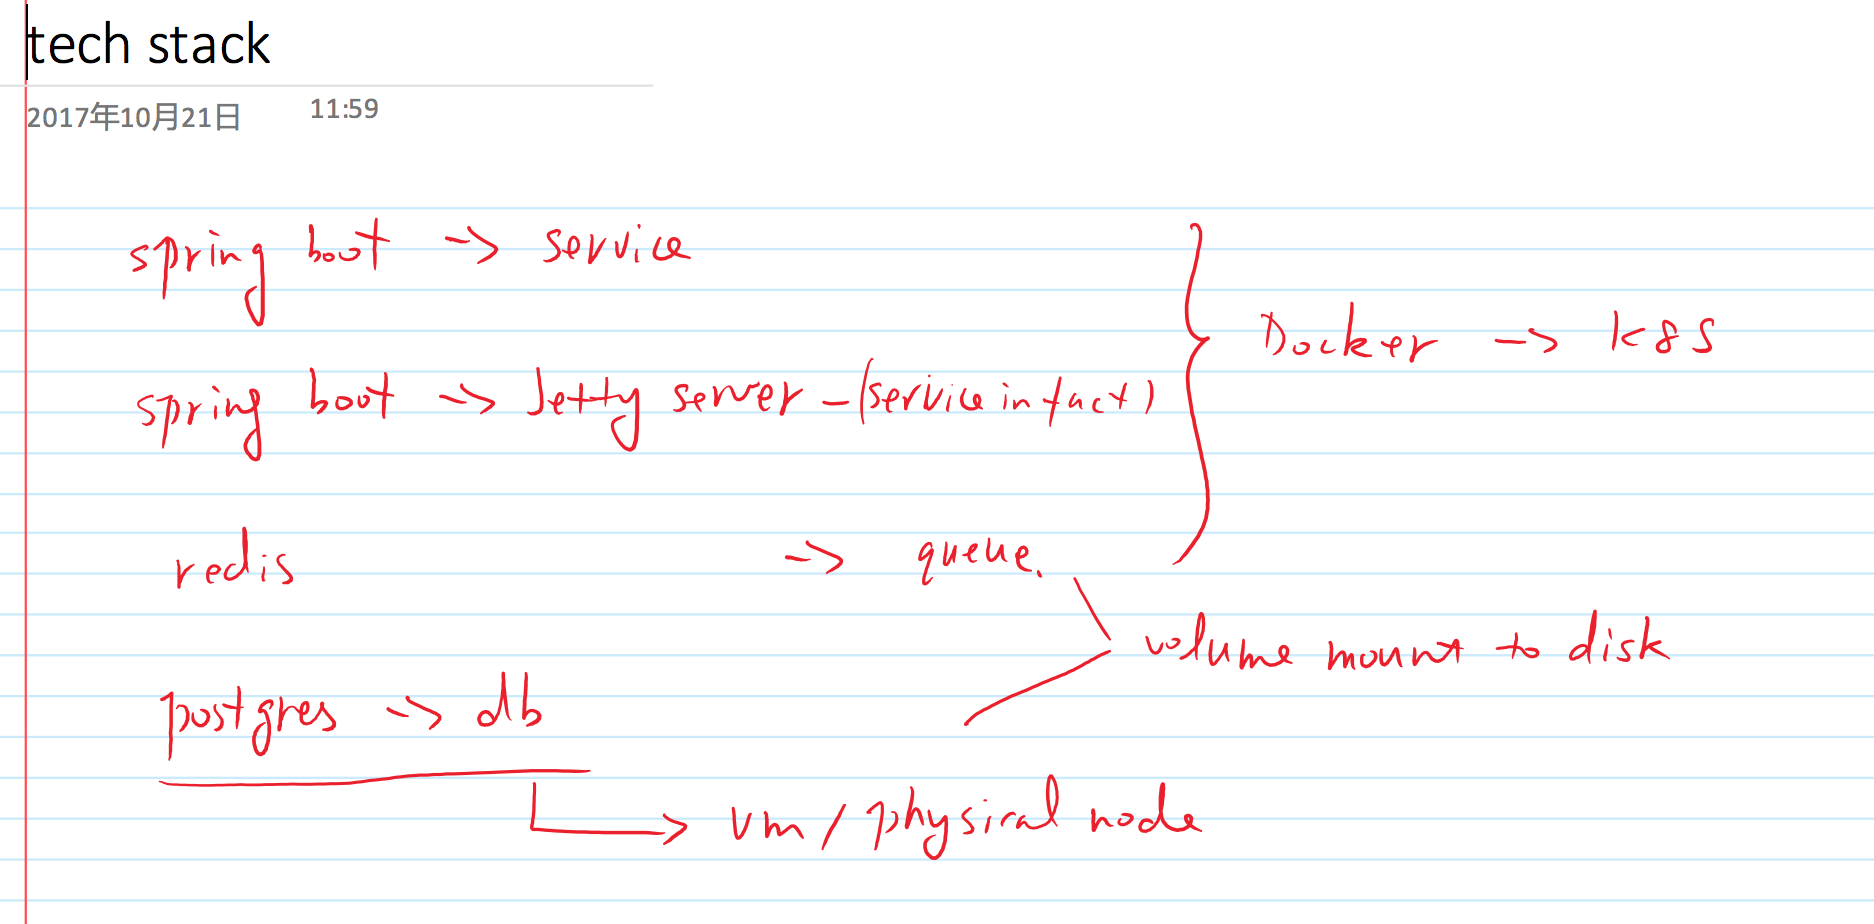 tech stack
2017年10月21日 11:59
spring boot -> service
Docker -> k8s
spring boot -> Jetty server - (service in fact)
redis -> queue.
volume mount to disk
postgres -> db
vm / physical node